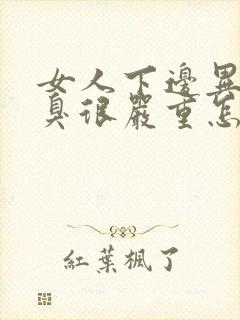 女人下邊異
臭很嚴重怎
紅葉楓了